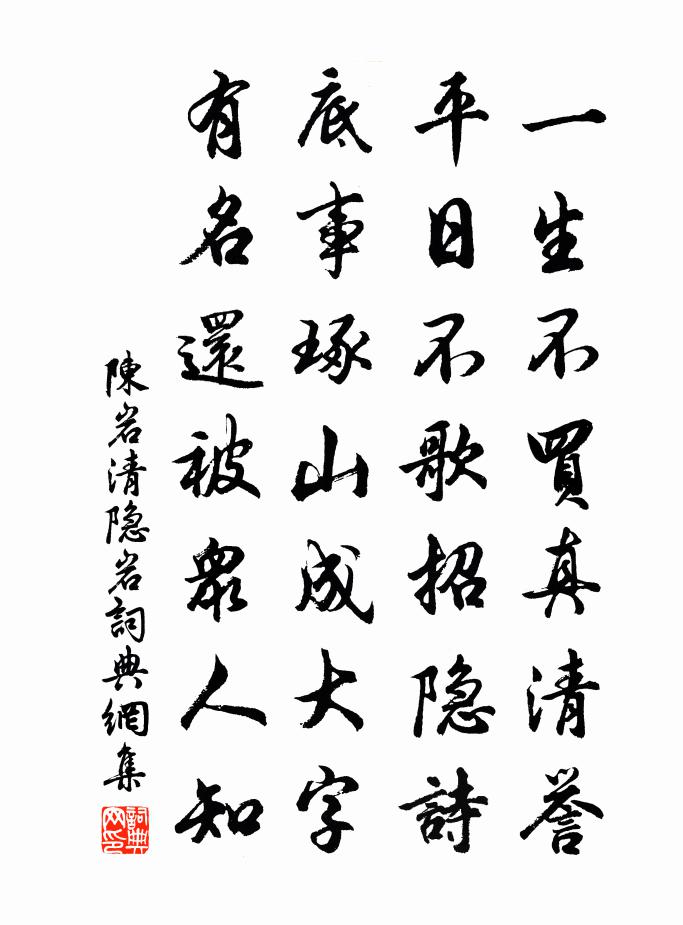 一生不買真清誉
平日不歌招隐詩
底事琢山成大字
有名還被眾人知
陳岩清隐岩詞典網集
詞典网印